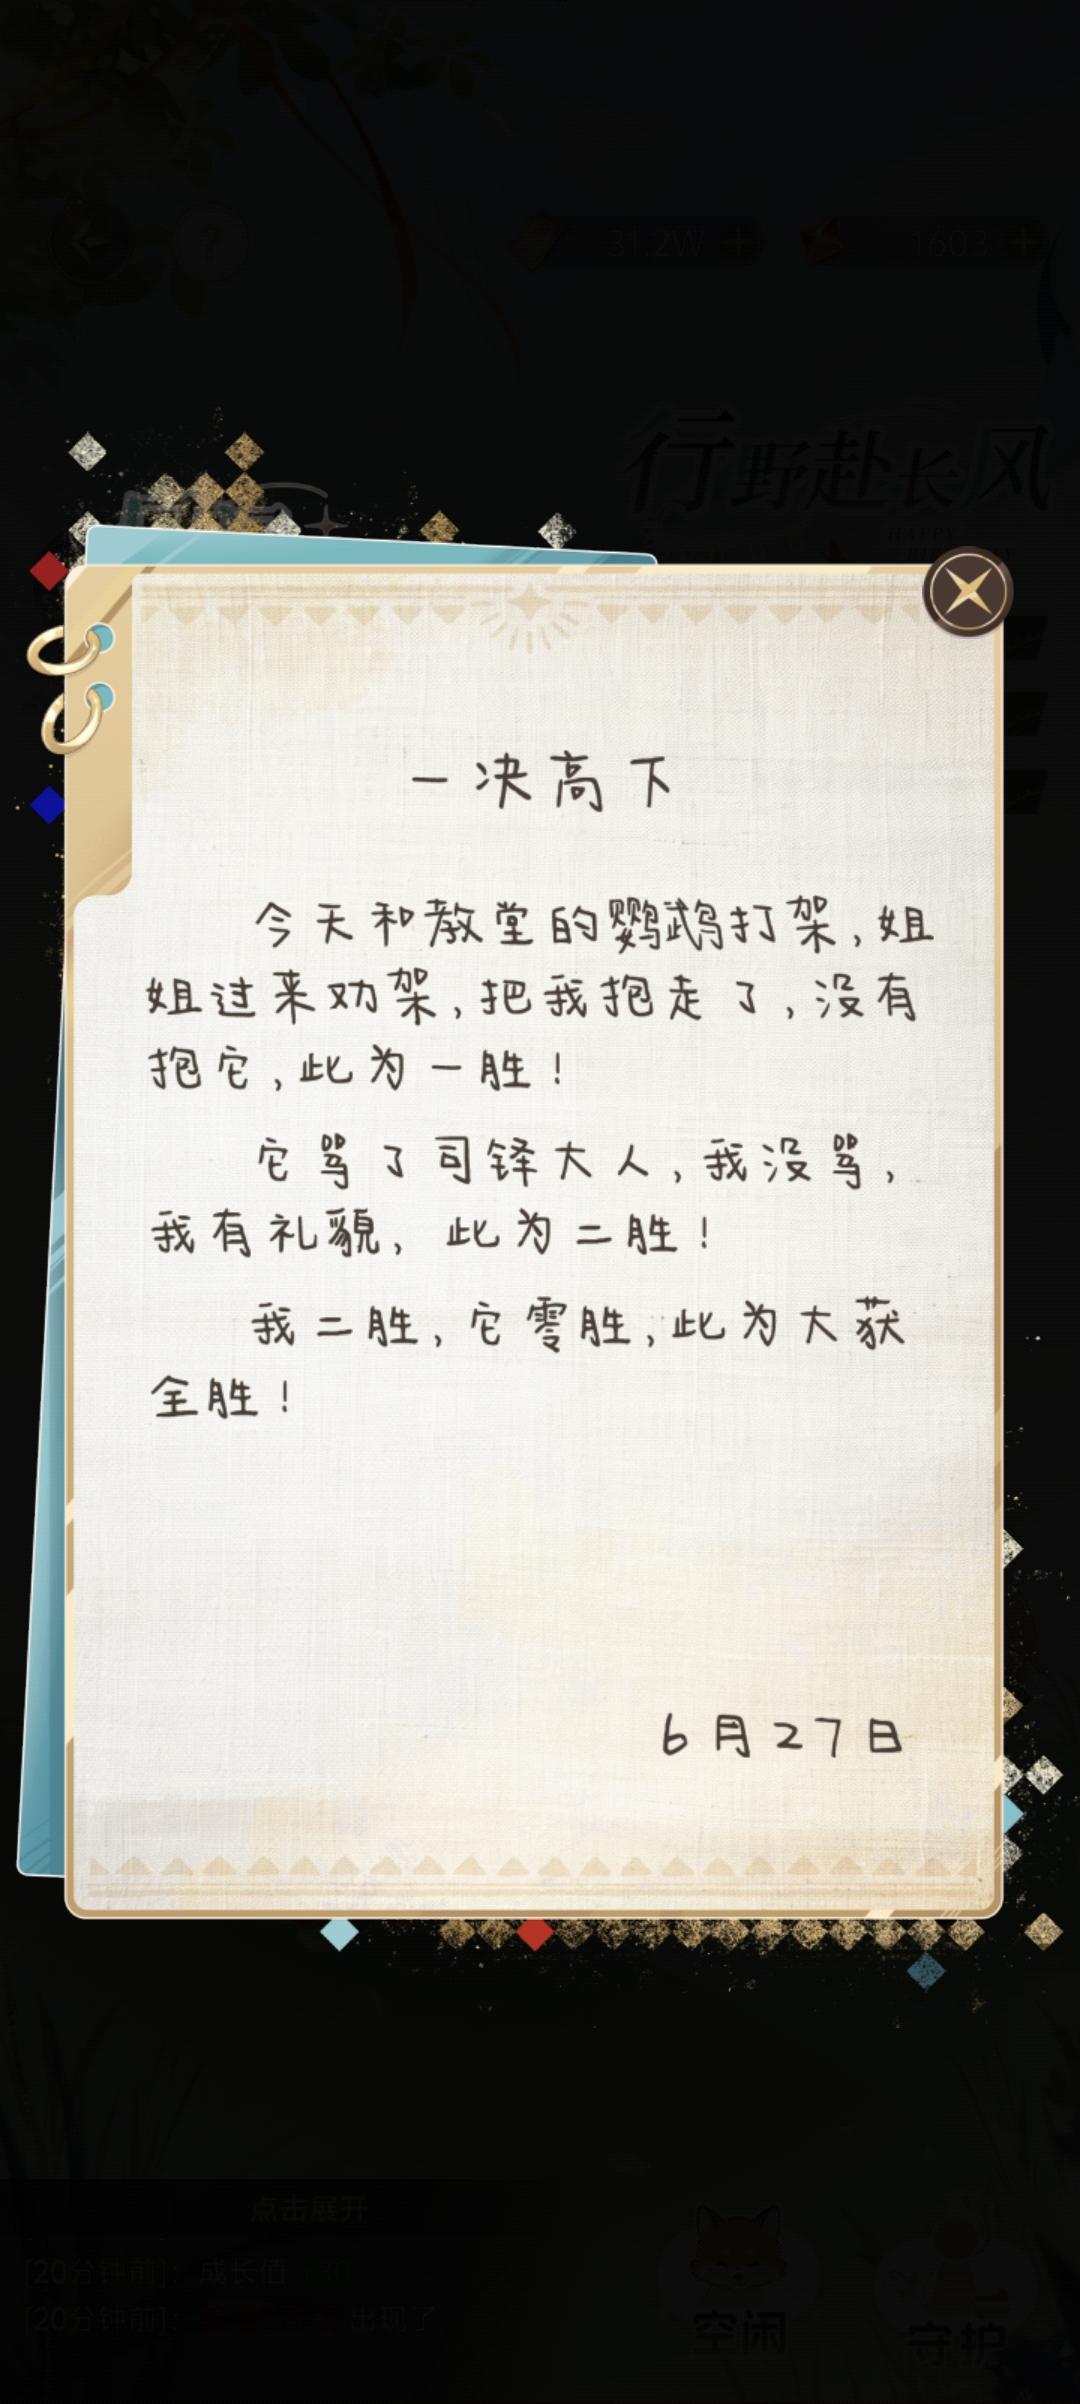 31.2W
1603
行野赴长风
HAPPY
一决高下
今天和教堂的鹦鹉打架,姐
姐过来劝架,把我抱走了,没有
抱它,此为一胜!
它骂了司铎大人,我没骂,
我有礼貌,此为二胜!
我二胜,它零胜,此为大获
全胜!
6月27日
点击展开
[20分钟前]: 成长值
[20分钟前]:
出现了
空闲
守护